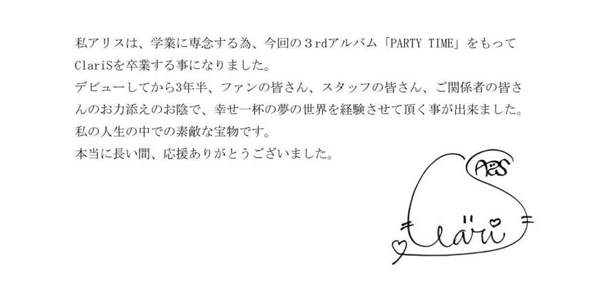 私アリスは、学業に専念する為、今回の３rdアルバム「PARTY TIME」をもって
ClariSを卒業する事になりました。
デビューしてから3年半、ファンの皆さん、スタッフの皆さん、ご関係者の皆さ
んのお力添えのお陰で、幸せ一杯の夢の世界を経験させて頂く事が出来ました。
私の人生の中での素敵な宝物です。
本当に長い間、応援ありがとうございました。
ClariS